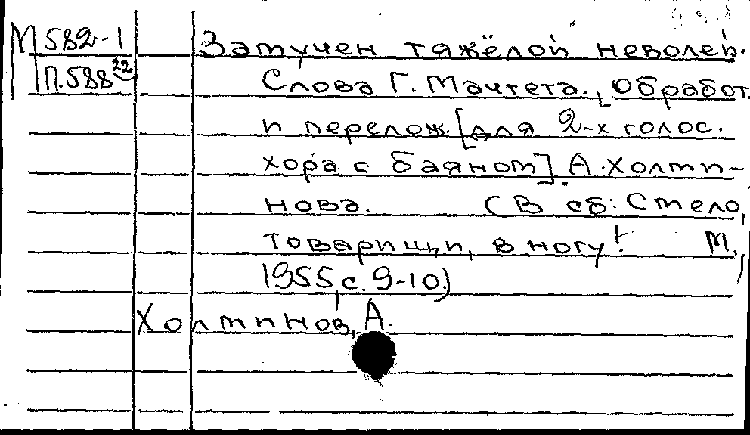 М 582-1 Замучен тяжёлой неволей.
П.588 22 Слова Г. Мачтета., Обработ.
и перелож. [для 2-х голос.
хора с баяном]. А. Холми-
нова. (В сб: Смело,
товарищи, в ногу! М.,
1955, с. 9-10)
Холминов, А.